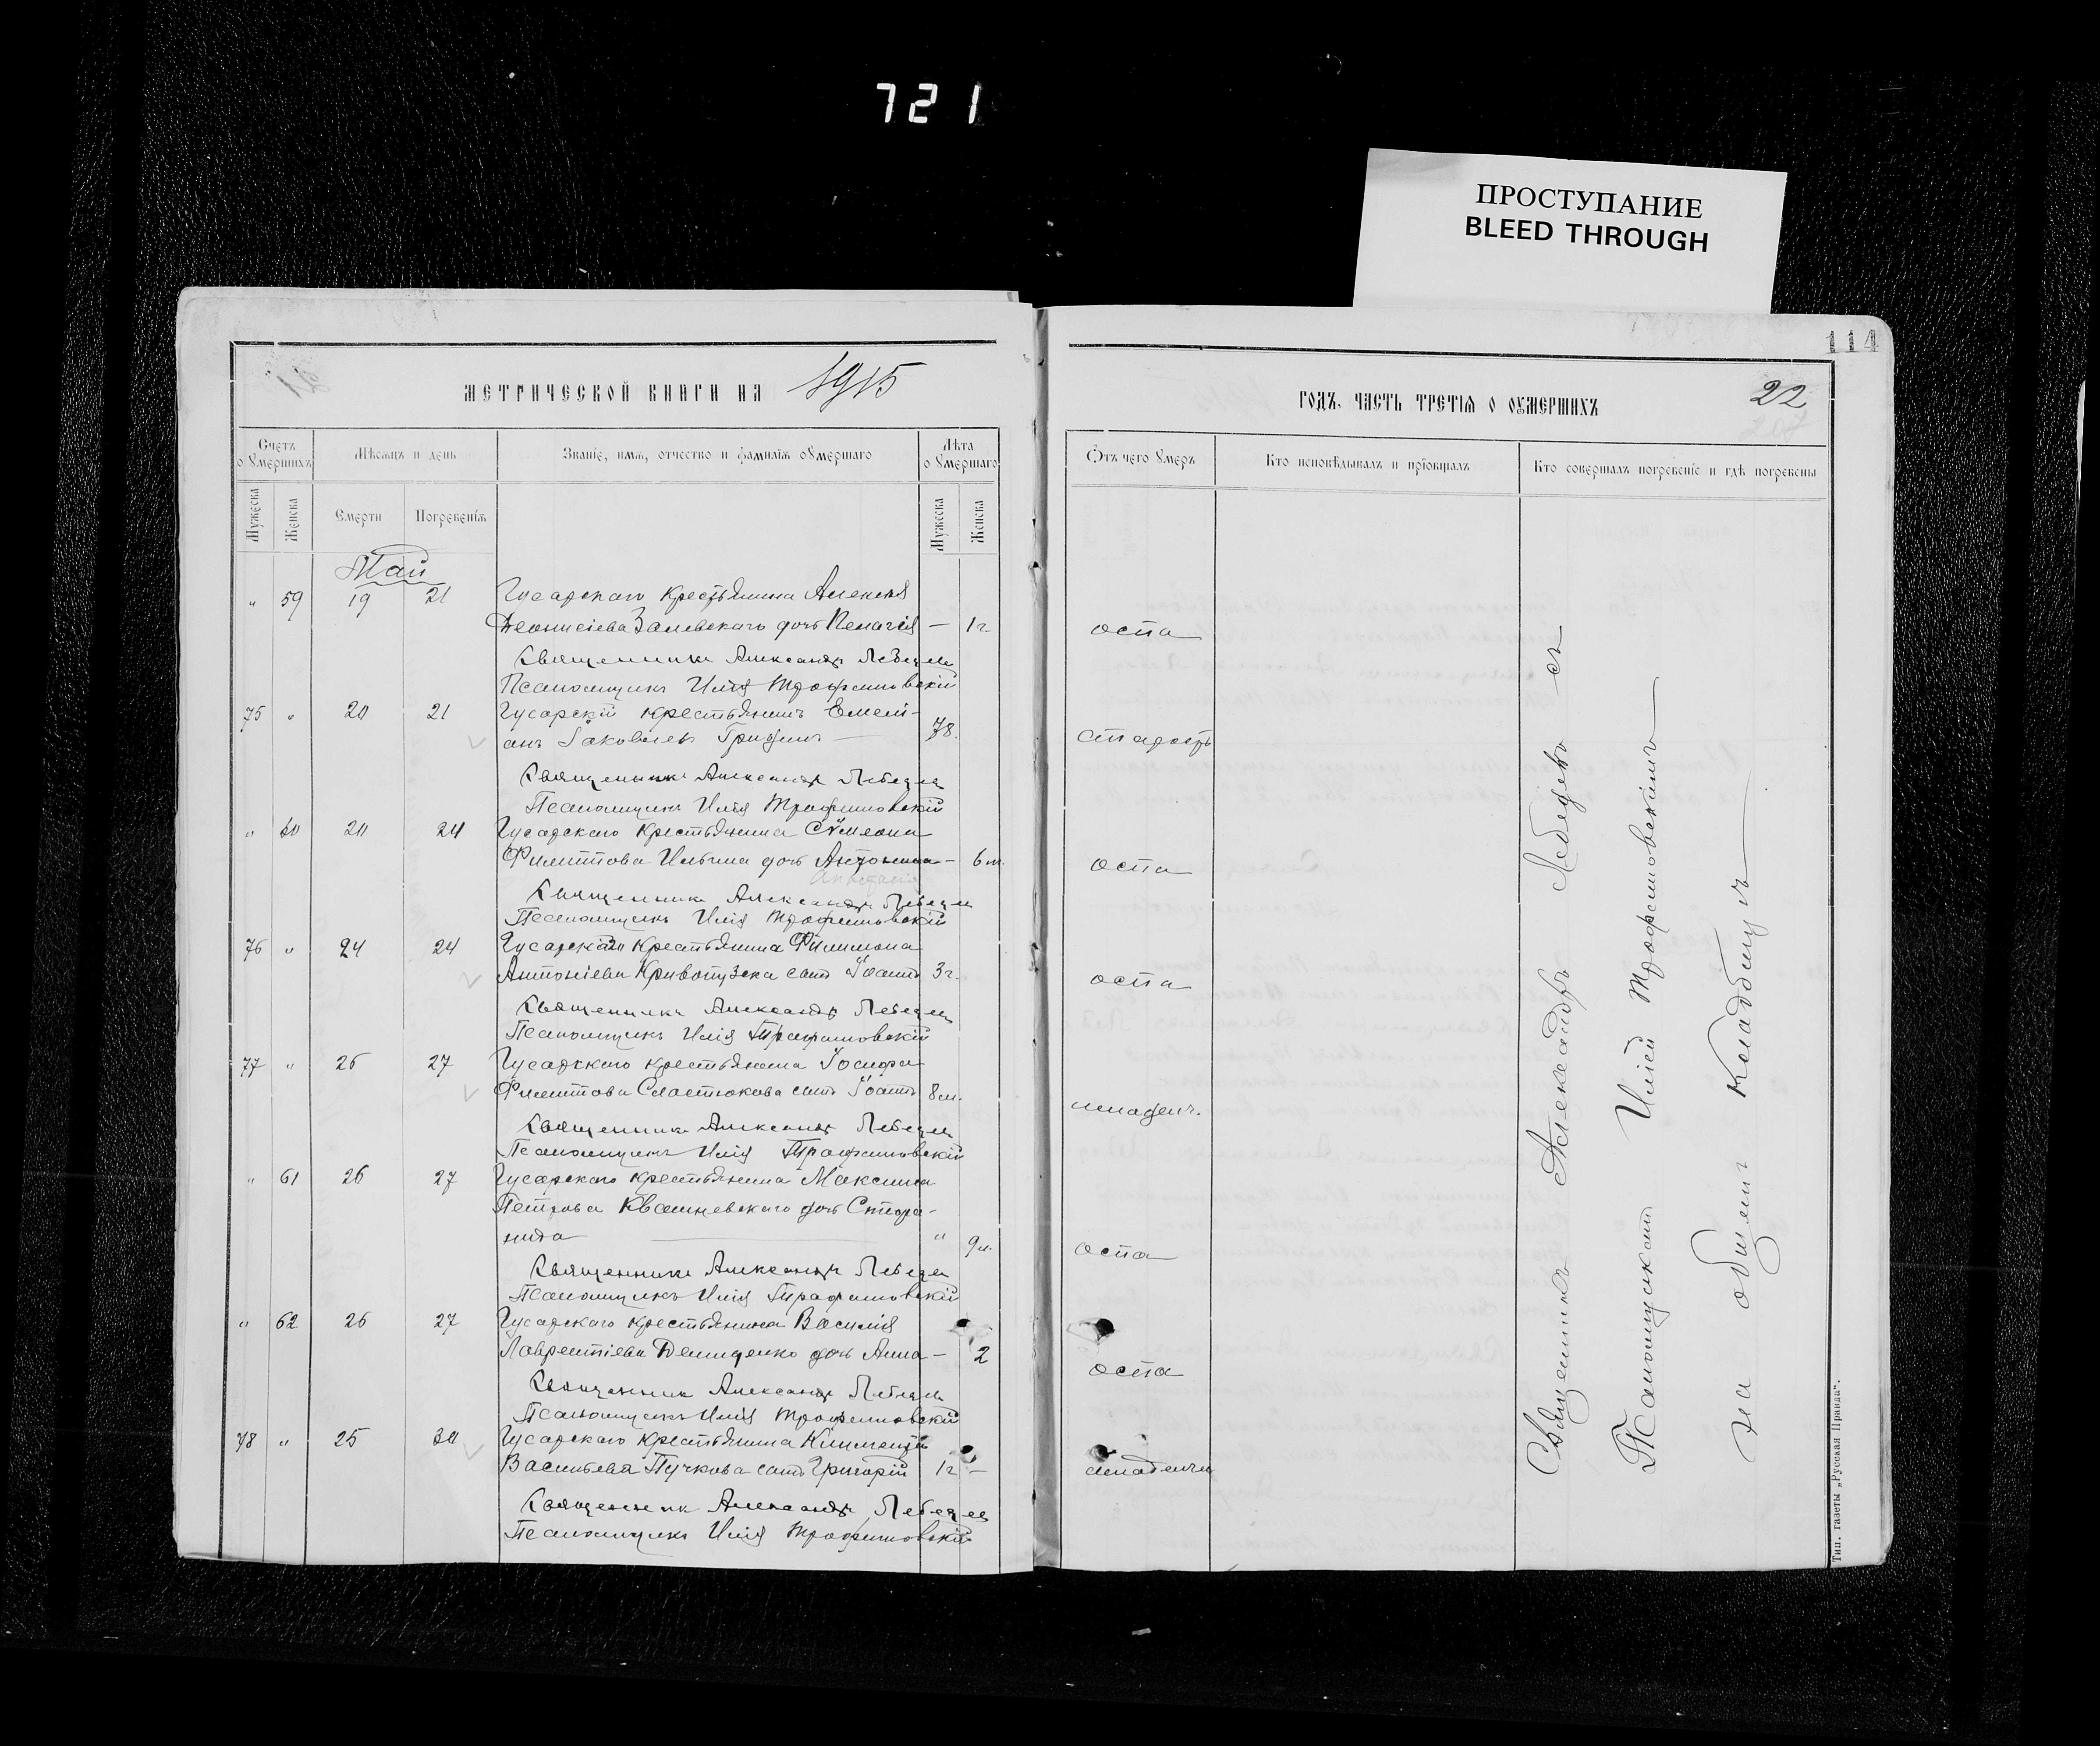 721
ПРОСТУПАНИЕ
BLEED THROUGH
МЕТРИЧЕСКОЙ КНИГИ НА 1915
Счетъ о умершихъ
Мѣсяцъ и день
Званіе, имя, отчество и фамилія оумершаго
Лѣта оумершаго
Мужеска
Женска
Смерти
Погребенія
Мужеска
Женска
Май
" 59 19 21 Гусарскаго крестьянина Алексѣя
Деонисіева Залевскаго дочь Пелагія — 1 г.
Священникъ Александръ Лебедев
Псаломщикъ Илія Трофимовскій
75 " 20 21 Гусарскій крестьянинъ Емелі-
анъ Іаковлевъ Гридинъ 78.
Священникъ Александръ Лебедев
Псаломщикъ Илія Трофимовскій
" 60 20 24 Гусарскаго крестьянина Сѵмеона
Филиппова Ильина дочь Антонина — 6 м.
Священникъ Александръ Лебедев
Псаломщикъ Илія Трофимовскій
76 " 24 24 Гусарскаго крестьянина Филимона
Антоніева Кривопузска сынъ Іоаннъ 3 г.
Священникъ Александръ Лебедев
Псаломщикъ Илія Трофимовскій
77 " 26 27 Гусарскаго крестьянина Іосифа
Филиппова Сластюкова сынъ Іоаннъ 8 м.
Священникъ Александръ Лебедев
Псаломщикъ Илія Трофимовскій
" 61 26 27 Гусарскаго крестьянина Максима
Петрова Квашневскаго дочь Стефа-
нида " 9 м.
Священникъ Александръ Лебедев
Псаломщикъ Илія Трофимовскій
" 62 26 27 Гусарскаго крестьянина Василія
Лаврентіева Демиденко дочь Анна — 2
Священникъ Александръ Лебедев
Псаломщикъ Илія Трофимовскій
78 " 25 30 Гусарскаго крестьянина Климента
Васильева Пучкова сынъ Григорій 1 г —
Священникъ Александръ Лебедев
Псаломщикъ Илія Трофимовскій
114
ГОДЪ, ЧАСТЬ ТРЕТІЯ О ОУМЕРШИХЪ 22
Отъ чего умеръ
Кто исповѣдывалъ и пріобщалъ
Кто совершалъ погребеніе и гдѣ погребены
оспа
старость
оспа
оспа
младенч.
оспа
оспа
младенч
Священникъ Александръ Лебедевъ съ
Псаломщикомъ Иліей Трофимовскимъ
на общемъ кладбищѣ
Тип. газеты „Русская Правда".